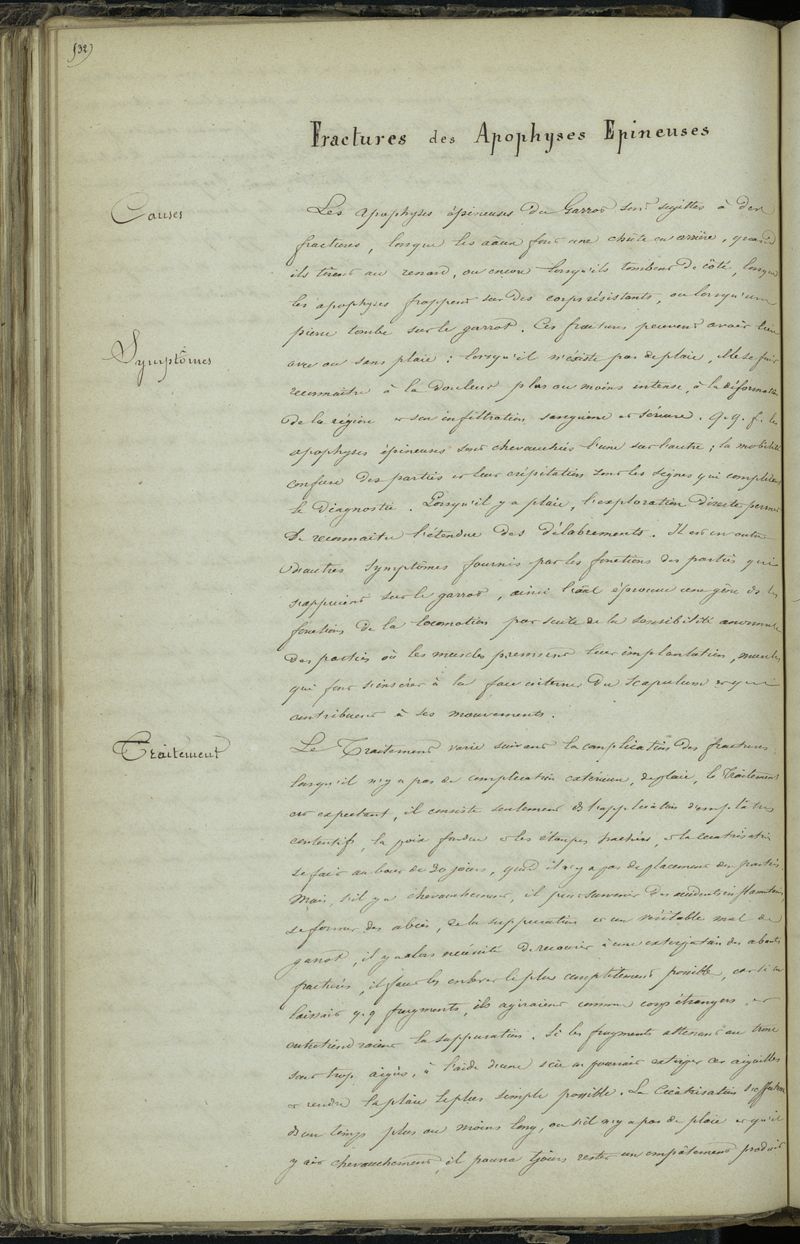 (32)
Fractures des Apophyses Epineuses
Causes
Les apophyses épineuses du Garrot sont sujettes à des
fractures, lorsque les aãux font une chûte en arrière, quand
ils tirent au renard, ou encore lorsqu'ils tombent de côté, lorsque
les apophyses frappent sur des corps résistants, ou lorsqu'une
pierre tombe sur le garrot. Ces fractures peuvent avoir lieu
Symptômes
avec ou sans plaie : lorsqu'il n'éxiste pas de plaie, elle se fait
reconnaitre à la douleur plus ou moins intense, à la déformation
de la région et son infiltration sanguine et séreuse. q. q. f. les
apophyses épineuses sont chevauchées l'une sur l'autre ; la mobilité
confuse des parties et leur crépitation sont les signes qui complètent
le diagnostic. Lorsqu'il y a plaie, l'exploration directe permet
de reconnaitre l'étendue des délabrements. Il est en outre
d'autres symptômes fournis par les fonctions des parties qui
s'appuient sur le garrot, ainsi l'aãl éprouve une gêne ds les
fonctions de la locomotion par suite de la sensibilité anormale
des parties où les muscles prennent leur implantation, muscles
qui font s'insérer à la face interne du scapulum et qui
contribuent à ses mouvements.
Traitement
Le Traitement varie suivant la complication des fractures
lorsqu'il n'y a pas de complication extérieure, de plaie, le Traitement
est expectant, il consiste seulement ds l'application d'emplâtres
contentifs, la poix fondue et les étoupes hachées, et la cicatrisation
se fait au bout de 30 jours, quand il n'y a pas déplacement des parties.
Mais, s'il y a chevauchement, il peut survenir des accidents inflammatoires
se former des abcès, de la suppuration et un véritable mal de
garrot, il y a alors nécessité de recourir à une extirpation des abouts
fracturés, il faut les enlever le plus complètement possible, car si on
laissait q. q fragments, ils agiraient comme corps étrangers et
entretiendraient la suppuration. Si les fragments attenant au tronc
sont trop aigüs, à l'aide d'une scie on pourrait extirper ces aiguilles
et rendre la plaie le plus simple possible. La Cicatrisation s'effectue
ds un temps plus ou moins long, ou s'il n'y a pas de plaie et qu'il
y ait chevauchement, il pourra tjours rester un empâtement produit